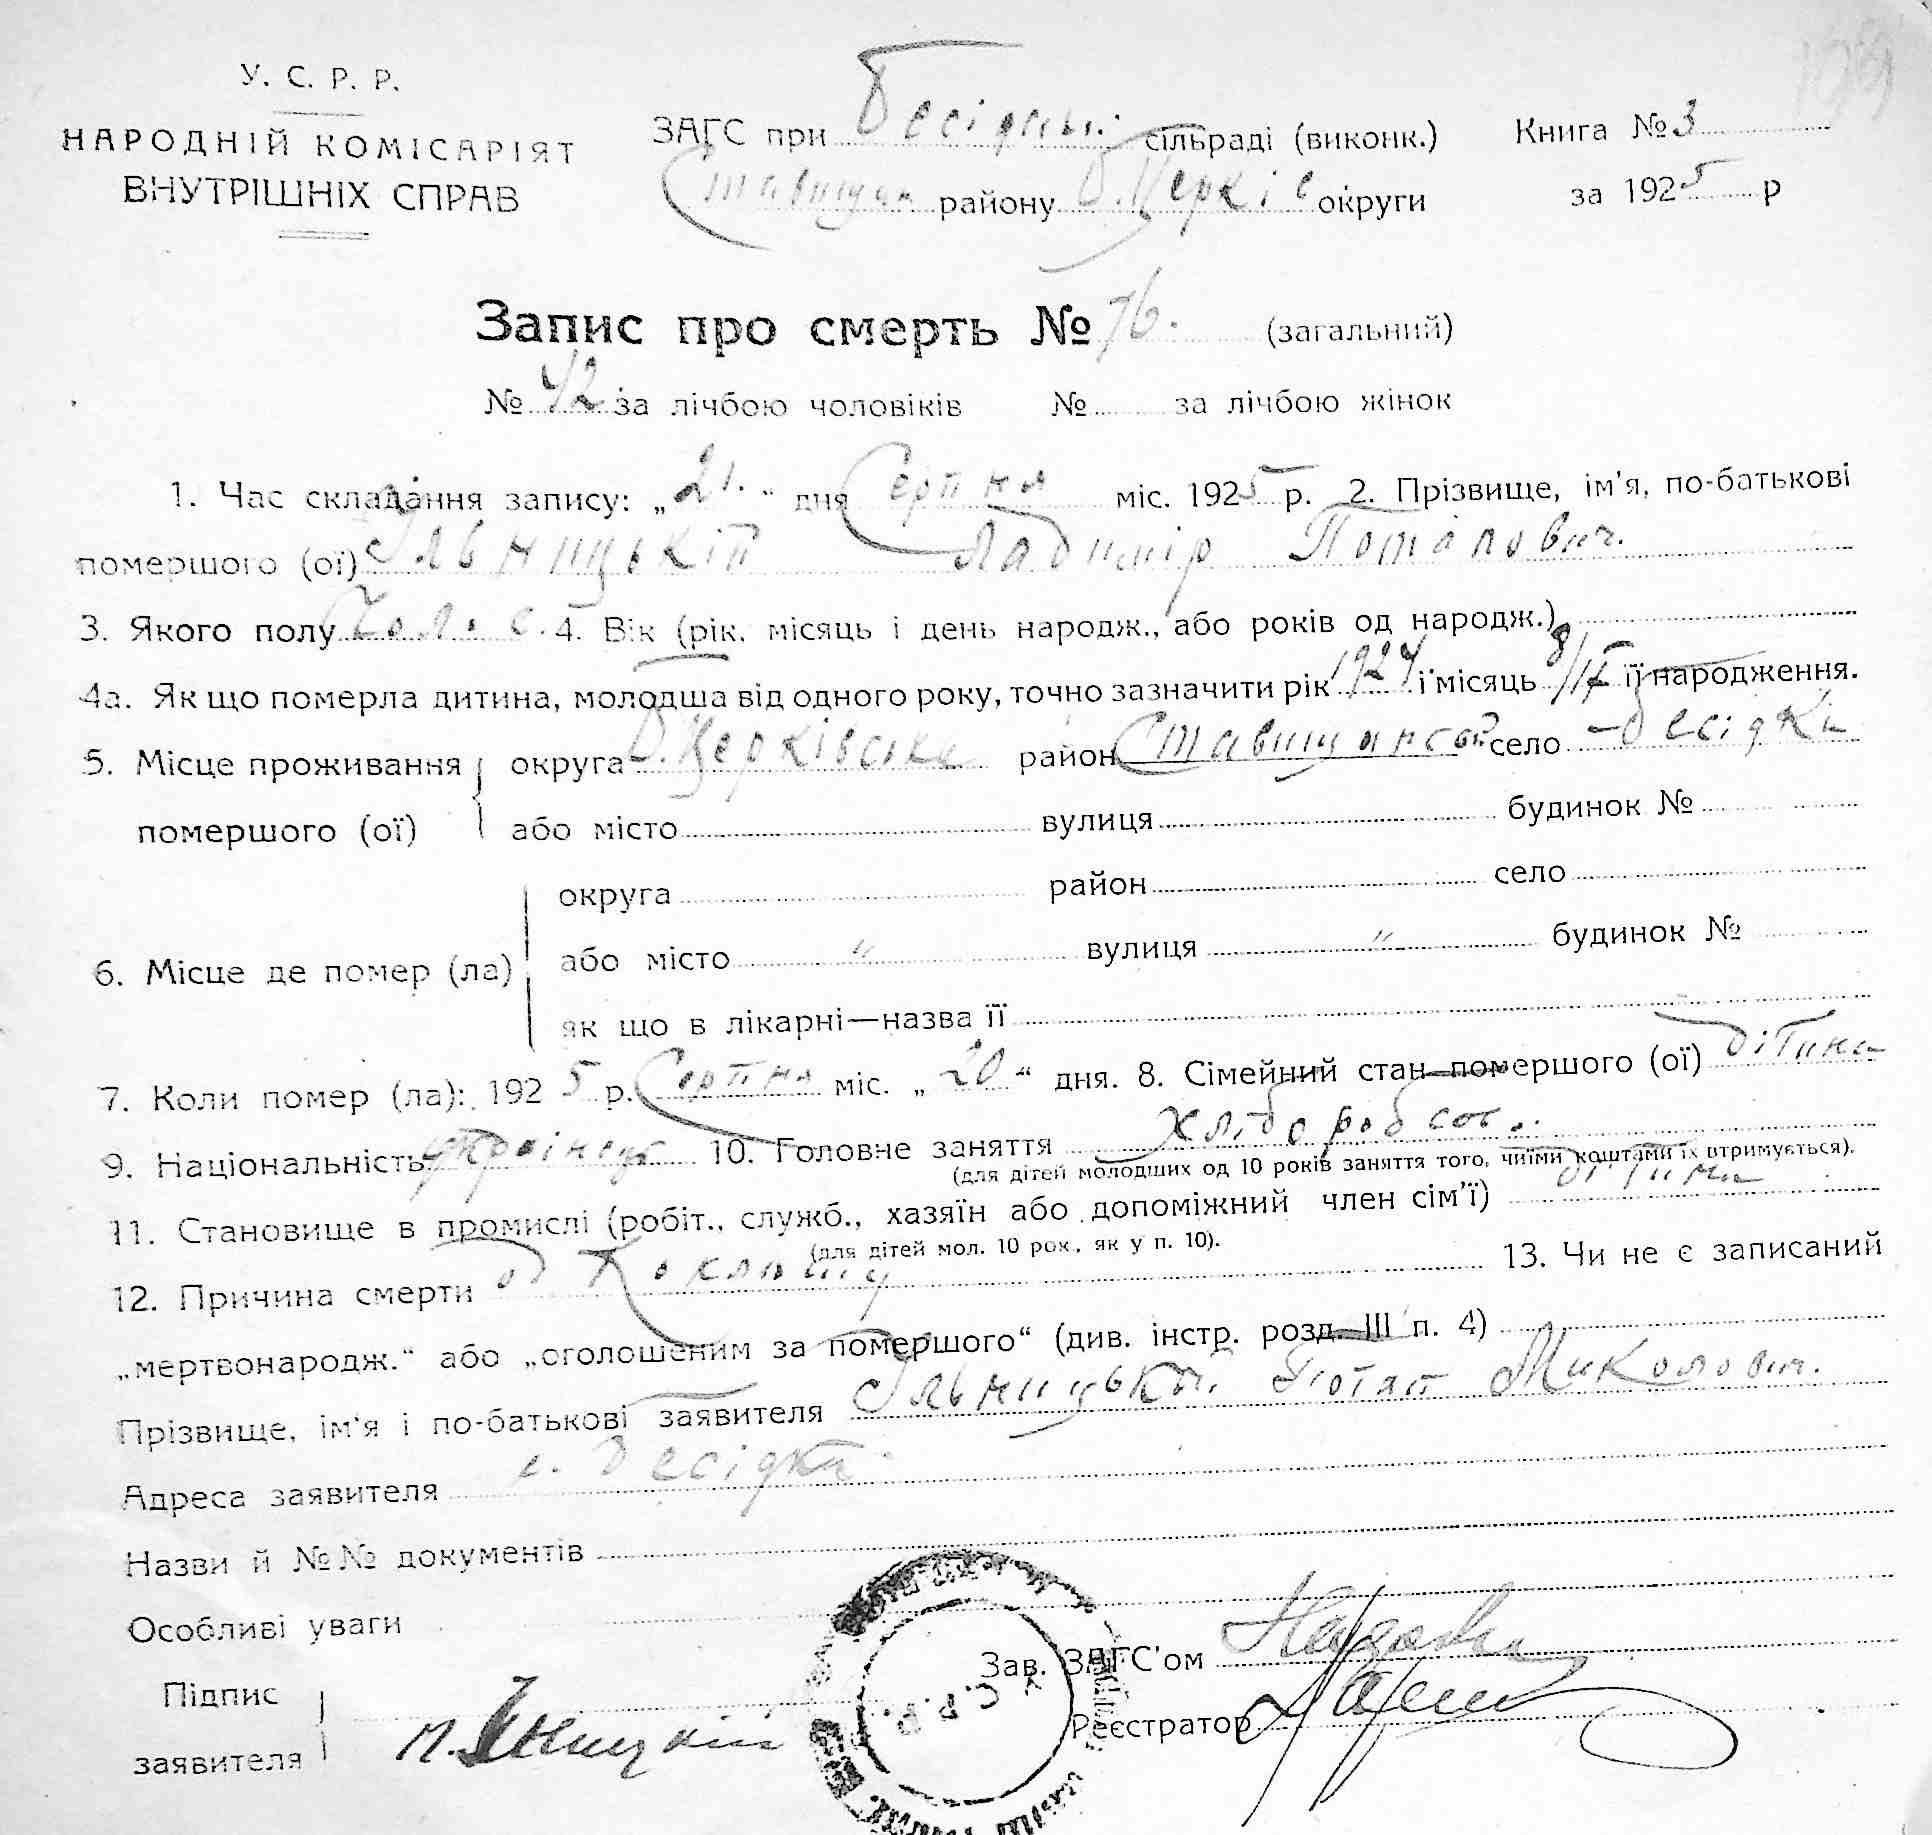 У. С. Р. Р.
НАРОДНІЙ КОМІСАРІЯТ
ВНУТРІШНІХ СПРАВ
ЗАГС при Бесідськ. сільраді (виконк.) Книга № 3
Ставищан району Б. Церків округи за 1925 р
Запис про смерть № 76. (загальний)
№ 42 за лічбою чоловіків № за лічбою жінок
1. Час складання запису: „21.“ дня Серпня міс. 1925 р. 2. Прізвище, ім'я, по-батькові
помершого (ої) Ільницькій Ладимір Потапович.
3. Якого полу Чолов. 4. Вік (рік. місяць і день народж., або років од народж.)
4а. Як що померла дитина, молодша від одного року, точно зазначити рік 1924 і місяць 8/IX її народження.
5. Місце проживання округа Б. Церківська район Ставищанськ село Бесідки
помершого (ої) або місто вулиця будинок №
округа район село
6. Місце де помер (ла) або місто " вулиця " будинок №
як що в лікарні—назва її
7. Коли помер (ла): 1925 р. Серпня міс. „20“ дня. 8. Сімейний стан помершого (ої) дітина
9. Національність українець 10. Головне заняття хлібороб
(для дітей молодших од 10 років заняття того, чиїми коштами їх втримується).
11. Становище в промислі (робіт., служб., хазяїн або допоміжний член сім'ї) дітина
(для дітей мол. 10 рок., як у п. 10).
12. Причина смерти од Коклюшу 13. Чи не є записаний
„мертвонародж.“ або „оголошеним за помершого“ (див. інстр. розд. III п. 4)
Прізвище, ім'я і по-батькові заявителя Ільницьк. Потап Миколович.
Адреса заявителя с. Бесідки
Назви й №№ документів
Особливі уваги
Зав. ЗАГС'ом
Підпис
заявителя П. Ільницкій
Реєстратор
У.С.Р.Р.